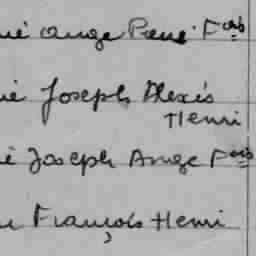 ié Ange René Fçois
ié Joseph Alexis
Henri
ié Joseph Ange Fçois
François Henri